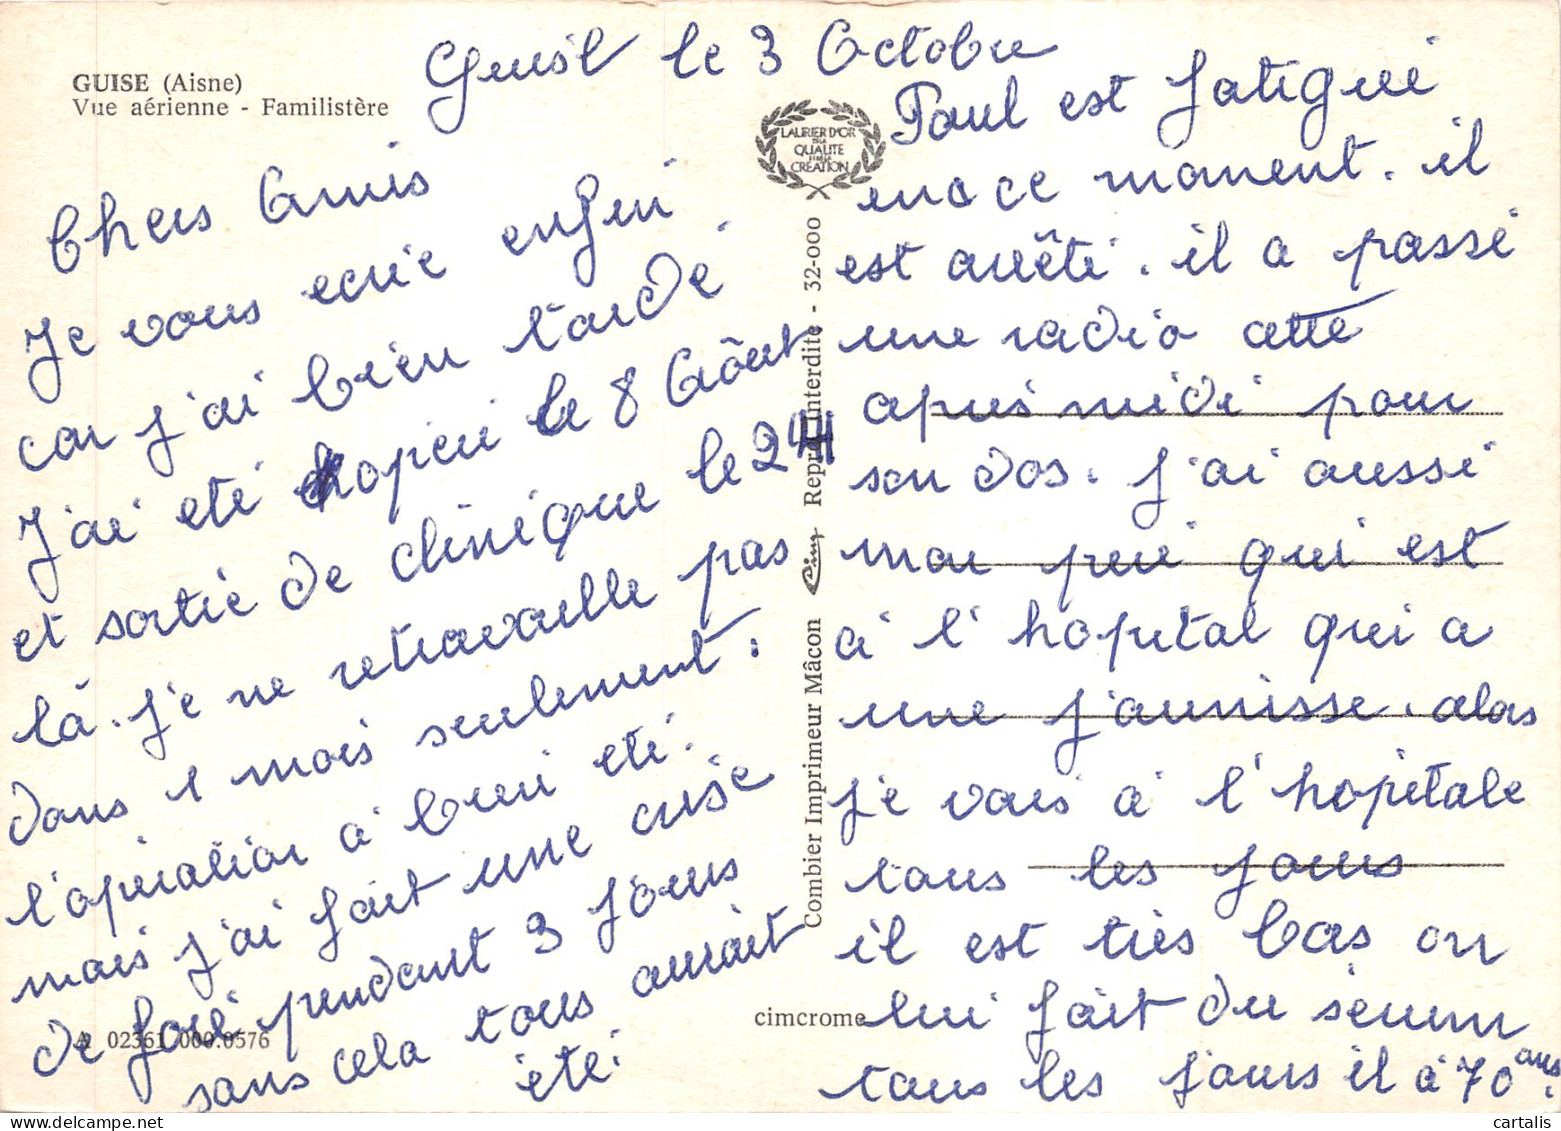 GUISE (Aisne)
Vue aérienne - Familistère
Guise le 3 Octobre
Chers Amis
Je vous ecrie enfin
car j'ai bien tardé.
J'ai eté opéré le 8 Août
et sortie de clinique le 24
là. Je ne retravaille pas
dans 1 mois seulement.
l'opération à bien eté.
mais j'ai fait une crise
de foie pendant 3 jours
sans cela tous aurait
été.
LAURIER D'OR
DE LA
QUALITE
ET DE LA
CREATION
Combier Imprimeur Mâcon Cim Reprod. Interdite - 32-000
A 02361 000.0576
cimcrome
Paul est fatigué
en ce moment. il
est arrêté. il a passé
une radio cette
après midi pour
son dos. J'ai aussi
mon père qui est
à l'hopital qui a
une jaunisse. alors
je vais à l'hopitale
tous les jours
il est très bas on
lui fait du sérum
tous les jours il à 70 ans.
cartalis